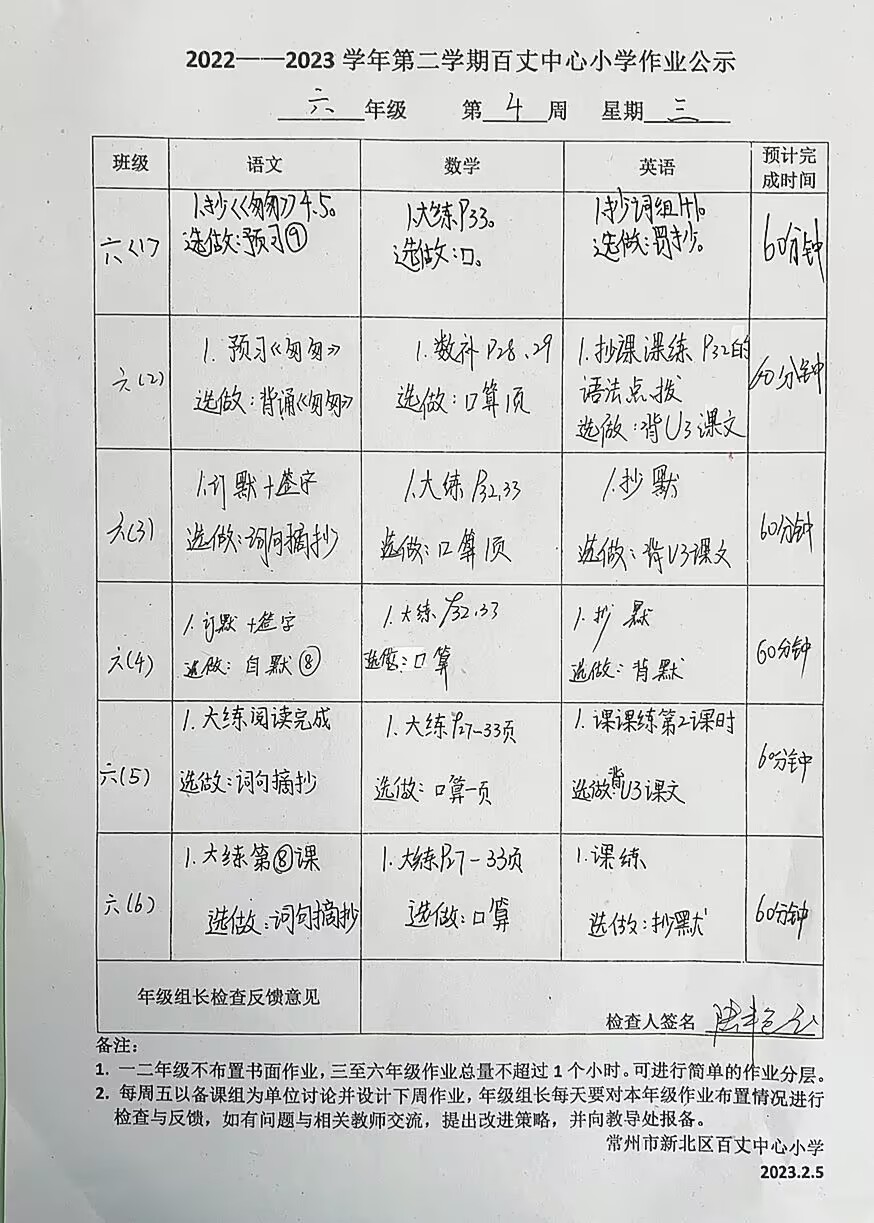 2022——2023 学年第二学期百丈中心小学作业公示
六 年级 第 4 周 星期 三
班级 语文 数学 英语 预计完成时间
六(1)
1.抄《匆匆》4.5。
选做:预习⑨
1.大练P33。
选做:口。
1.抄词组
选做:
60分钟
六(2)
1. 预习《匆匆》
选做:背诵《匆匆》
1.数补 P28、29
选做:口算1页
1.抄课课练 P32的
语法点拨
选做:背U3课文
60分钟
六(3)
1.订默+签字
选做:词句摘抄
1.大练 P32,33
选做:口算1页
1.抄默
选做:背U3课文
60分钟
六(4)
1.订默+签字
选做:自默⑧
1.大练 P32,33
选做:口算
1.抄默
选做:背默
60分钟
六(5)
1.大练阅读完成
选做:词句摘抄
1.大练P27-33页
选做:口算一页
1.课课练第2课时
选做:背U3课文
60分钟
六(6)
1.大练第⑧课
选做:词句摘抄
1.大练P27-33页
选做:口算
1.课练
选做:抄默
60分钟
年级组长检查反馈意见
检查人签名
备注:
1. 一二年级不布置书面作业,三至六年级作业总量不超过 1 个小时。可进行简单的作业分层。
2. 每周五以备课组为单位讨论并设计下周作业,年级组长每天要对本年级作业布置情况进行
检查与反馈,如有问题与相关教师交流,提出改进策略,并向教导处报备。
常州市新北区百丈中心小学
2023.2.5